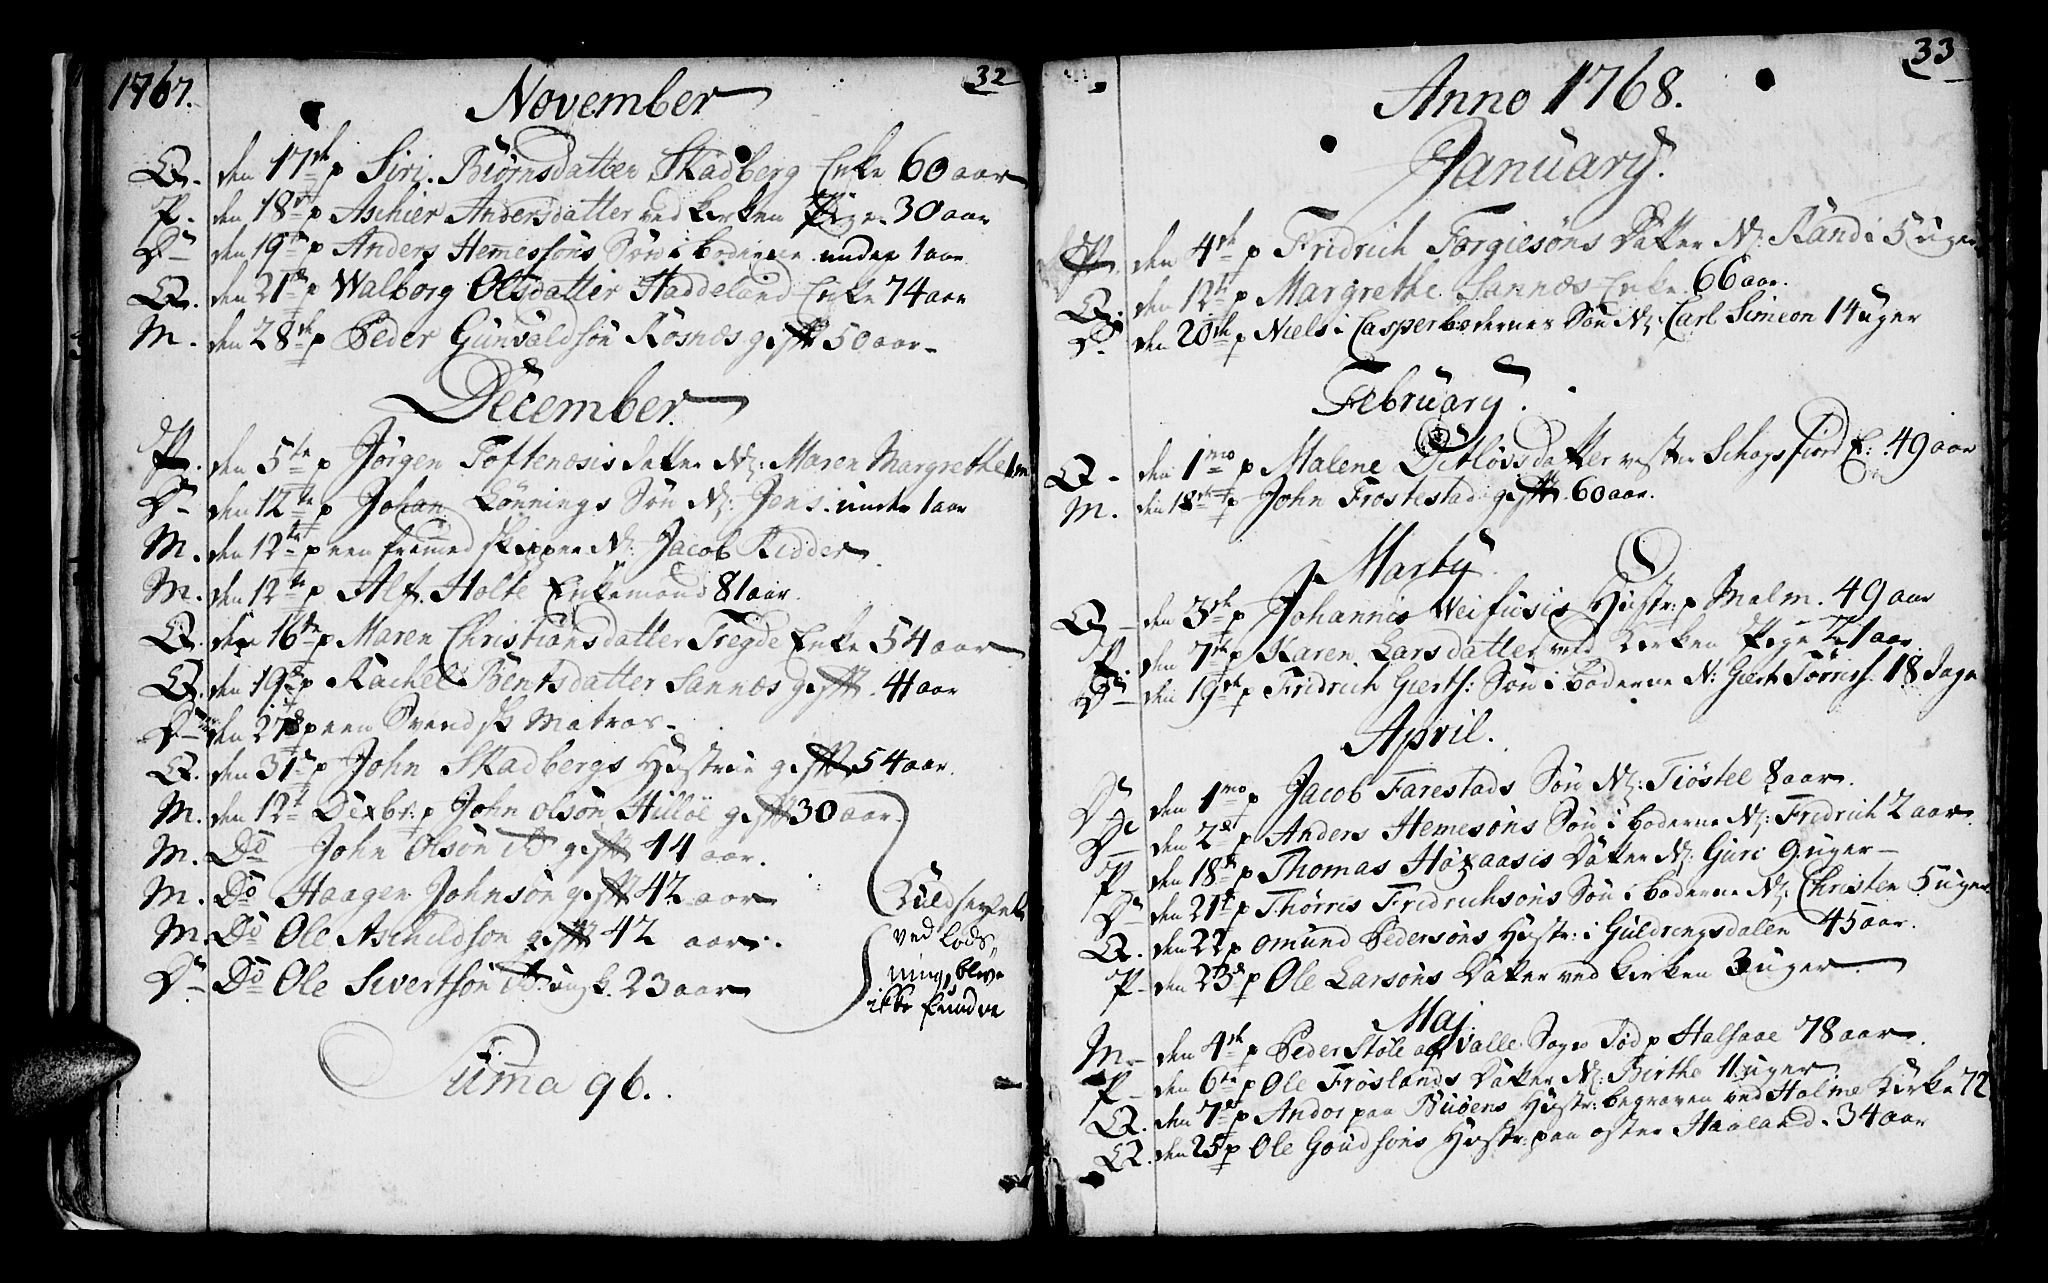 1767. November 32
Q. den 17de p Siri Biörnsdatter Skadberg Enke 60 aar
P. den 18de p Aschier Andersdatter ved Kirken Pige 30 aar
D. den 19de p Anders Hemessöns Sön i Boderne under 1 aar
Q. den 21de p Walborg Olsdatter Haddeland Enke 74 aar
M. den 28de p Peder Gunvaldsön Rosnæs gifft 50 aar
December.
P. den 5te p Jörgen Toftenæsis Datter N: Maren Margrethe 1 m
D. den 12te p Johan Lönnings Sön N: Jens. under 1 aar
M. den 12te p een fremed Skipper N: Jacob Ridder.
M. den 12te p Alf Holte Enkemand 81 aar.
Q. den 16te p Maren Christiansdatter Tregde Enke 54 aar
Q. den 19de p Rachel Bentsdatter Sannæs gifft. 41 aar
D. den 27de p een Svendsk Matros
Q. den 31te p John Skadbergs Hustrue gifft 54 aar.
M. den 12te Dexbr: p John Olsön Hilloe gifft 30 aar
M. Do John Olsön do gifft 44 aar.
M. Do Haagen Johnsön gifft 42 aar
M. Do Ole Aschildson gifft 42 aar.
D. Do Ole Sivertsön do ungk. 23 aar
Kuldseylet
ved Lods-
ning, bleve
ikke fundne
Suma 96.
33
Anno 1768.
January.
P. den 4de p Fridrich Torgiesöns Datter N: Randi 5 uger
Q. den 12te p Margrethe Sannæs Enke 66 aar.
D. den 20de p Niels i Casperbodernes Sön N: Carl Simeon 14 uger
February.
Q. den 1mo p Malene Ditlövsdatter vester Schogsfiord E: 49 aar
M. den 18de p John Frostestad gifft 60 aar.
Marty
Q. den 3de p Johannes Weifusis Hustr: p Malm. 49 aar
P. den 7de p Karen Larsdatter ved Kirken Pige 21 aar
D. den 19de p Fridrich Gierts: Sön i Boderne N: Giert Törris. 18 Dage
April.
D. den 1mo p Jacob Farestads Sön N: Tiöstel 8 aar.
D. den 2de p Anders Hemesöns Sön i Boderne N: Fridrich 2 aar.
P. den 18de p Thomas Höxaasis Datter N: Guri 9 uger
D. den 21de p Thörris Fridrichsöns Sön i Boderne N: Christen 5 uger
Q. den 22 p Omund Pedersöns Hustr: i Guldrengsdalen 45 aar.
P. den 23de p Ole Larsöns Datter ved Kirken 3 uger
Maj.
M. den 4de p Peder Stöle af Valle Sogn Död p Halsaae 78 aar.
P. den 6te p Ole Fröslands Datter N: Birthe 11 uger
Q. den 7de p Andor paa Buöens Hustr: begraven ved Holme Kirke 72
Q. den 25 p Ole Goudsöns Hustr: paa öster Haaland. 34 aar